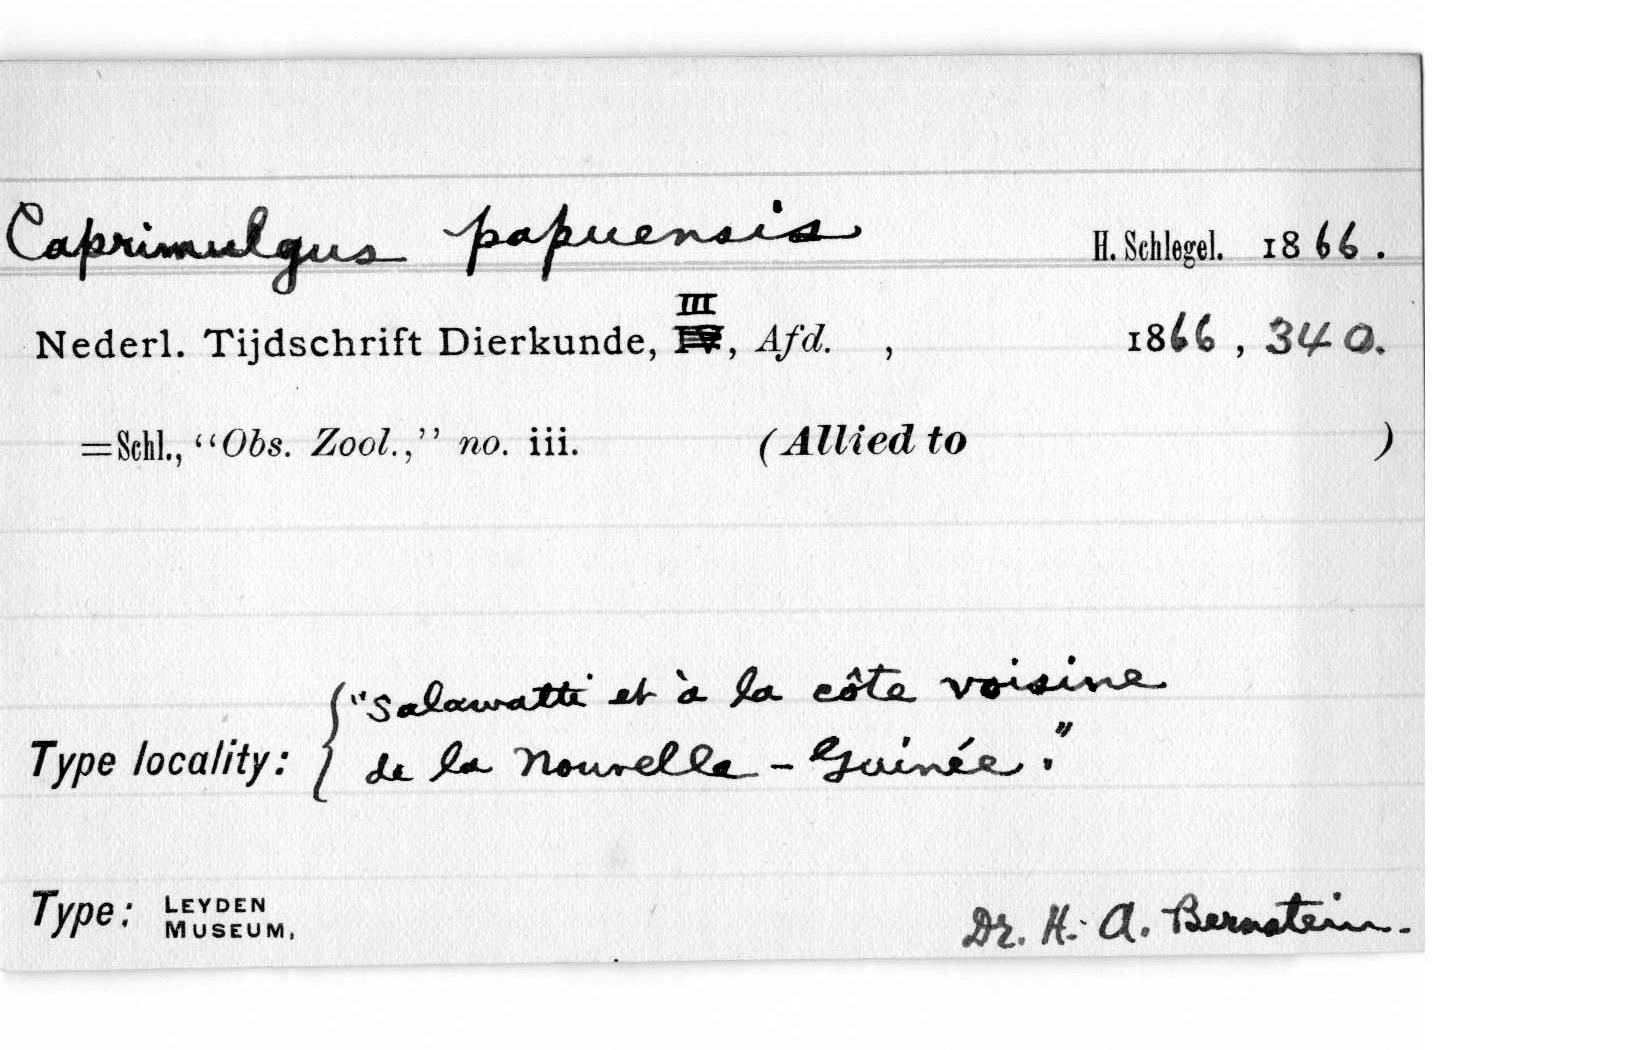 Caprimulgus papuensis H. Schlegel. 1866.
III
Nederl. Tijdschrift Dierkunde, IV, Afd. , 1866, 340.
=Schl., “Obs. Zool.,” no. iii. (Allied to )
"Salawatti et à la côte voisine
Type locality: de la Nouvelle-Guinée."
Type: LEYDEN
MUSEUM, Dr. H. A. Bernstein.